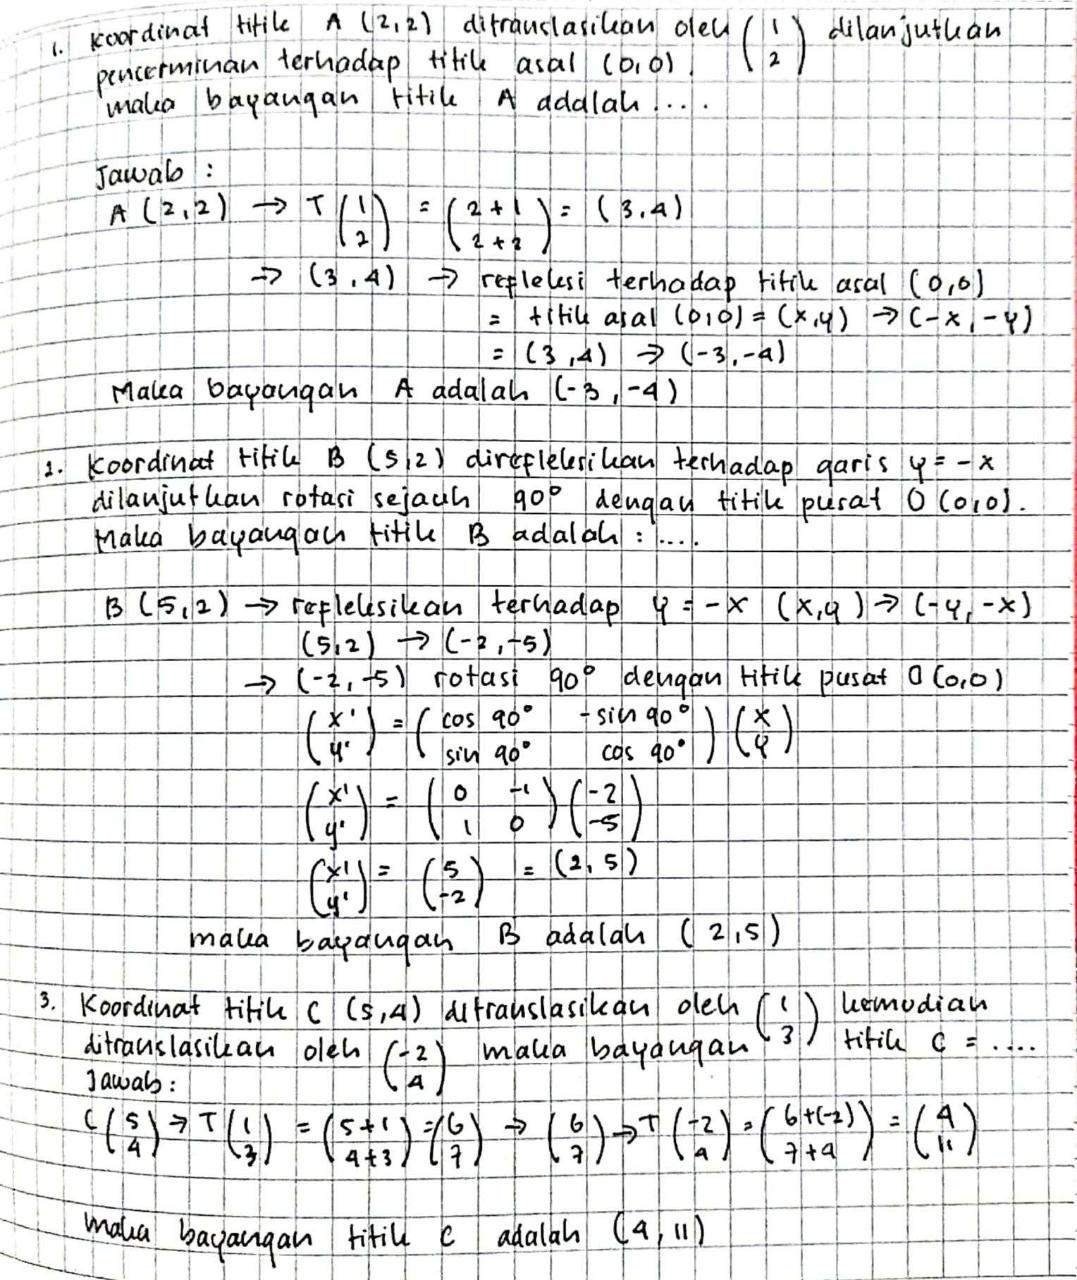 1. Koordinat titik A (2,2) ditranslasikan oleh (1 2) dilanjutkan
pencerminan terhadap titik asal (0,0).
maka bayangan titik A adalah ....
Jawab :
A (2,2) → T (1 2) = (2+1 2+2) = (3,4)
→ (3,4) → refleksi terhadap titik asal (0,0)
= titik asal (0,0) = (x,y) → (-x,-y)
= (3,4) → (-3,-4)
Maka bayangan A adalah (-3,-4)
2. Koordinat titik B (5,2) direfleksikan terhadap garis y = -x
dilanjutkan rotasi sejauh 90° dengan titik pusat O (0,0).
Maka bayangan titik B adalah : ....
B (5,2) → refleksikan terhadap y = -x (x,y) → (-y,-x)
(5,2) → (-2,-5)
→ (-2,-5) rotasi 90° dengan titik pusat O (0,0)
(x' y') = (cos 90° -sin 90° sin 90° cos 90°) (x y)
(x' y') = (0 -1 1 0) (-2 -5)
(x' y') = (5 -2) = (2,5)
maka bayangan B adalah (2,5)
3. Koordinat titik C (5,4) ditranslasikan oleh (1 3) kemudian
ditranslasikan oleh (-2 4) maka bayangan titik C = ....
Jawab :
C (5 4) → T (1 3) = (5+1 4+3) = (6 7) → (6 7) → T (-2 4) = (6+(-2) 7+4) = (4 11)
maka bayangan titik C adalah (4,11)